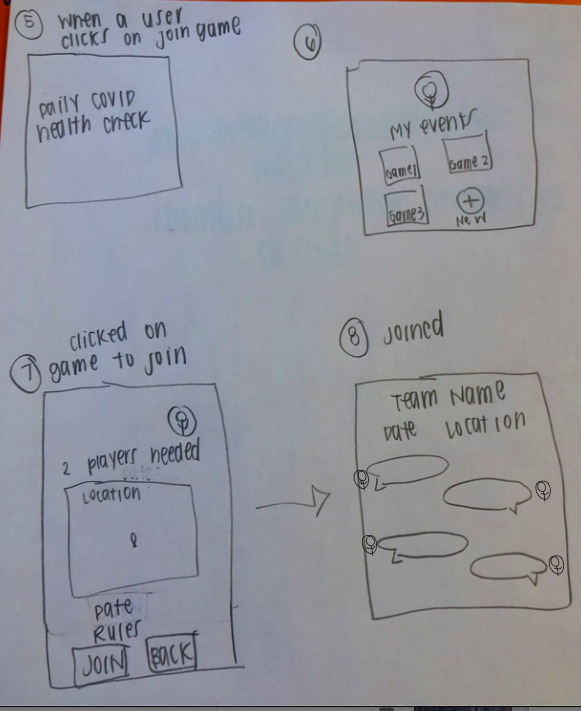 5 When a user
clicks on join game
Daily COVID
health check
6
My events
Game1
Game 2
Game3
New
7 clicked on
game to join
2 players needed
Location
Date
Rules
JOIN
BACK
8 Joined
Team Name
Date Location